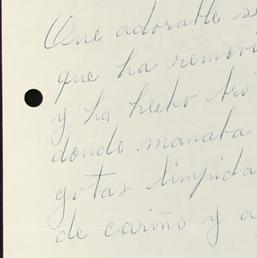 Que adorable se
que ha remov
y ha hecho bro
donde manaba
gotas limpida
de cariño y a